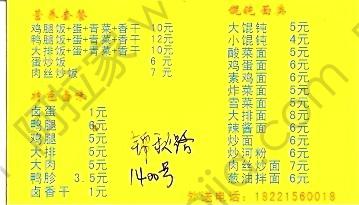 营养套餐
鸡腿饭+蛋+青菜+香干 10元
鸭腿饭+蛋+青菜+香干 12元
大排饭+蛋+青菜+香干 10元
蛋炒饭 6元
肉丝炒饭 7元
特色卤味
卤蛋 1元
鸭腿 6元
鸡腿 5元
大排 5元
大肉 5元
鸭胗 3.5元
卤香干 1元
锦秋路
1400号
馄饨面类
大馄饨 5元
小馄饨 4元
酸菜面 5元
鸡蛋面 6元
素鸡面 5元
炸蛋面 5元
雪菜面 5元
大排面 8元
辣酱面 6元
炒面 6元
炒河粉 6元
肉丝炒面 7元
葱油拌面 5元
外送电话：18221560018